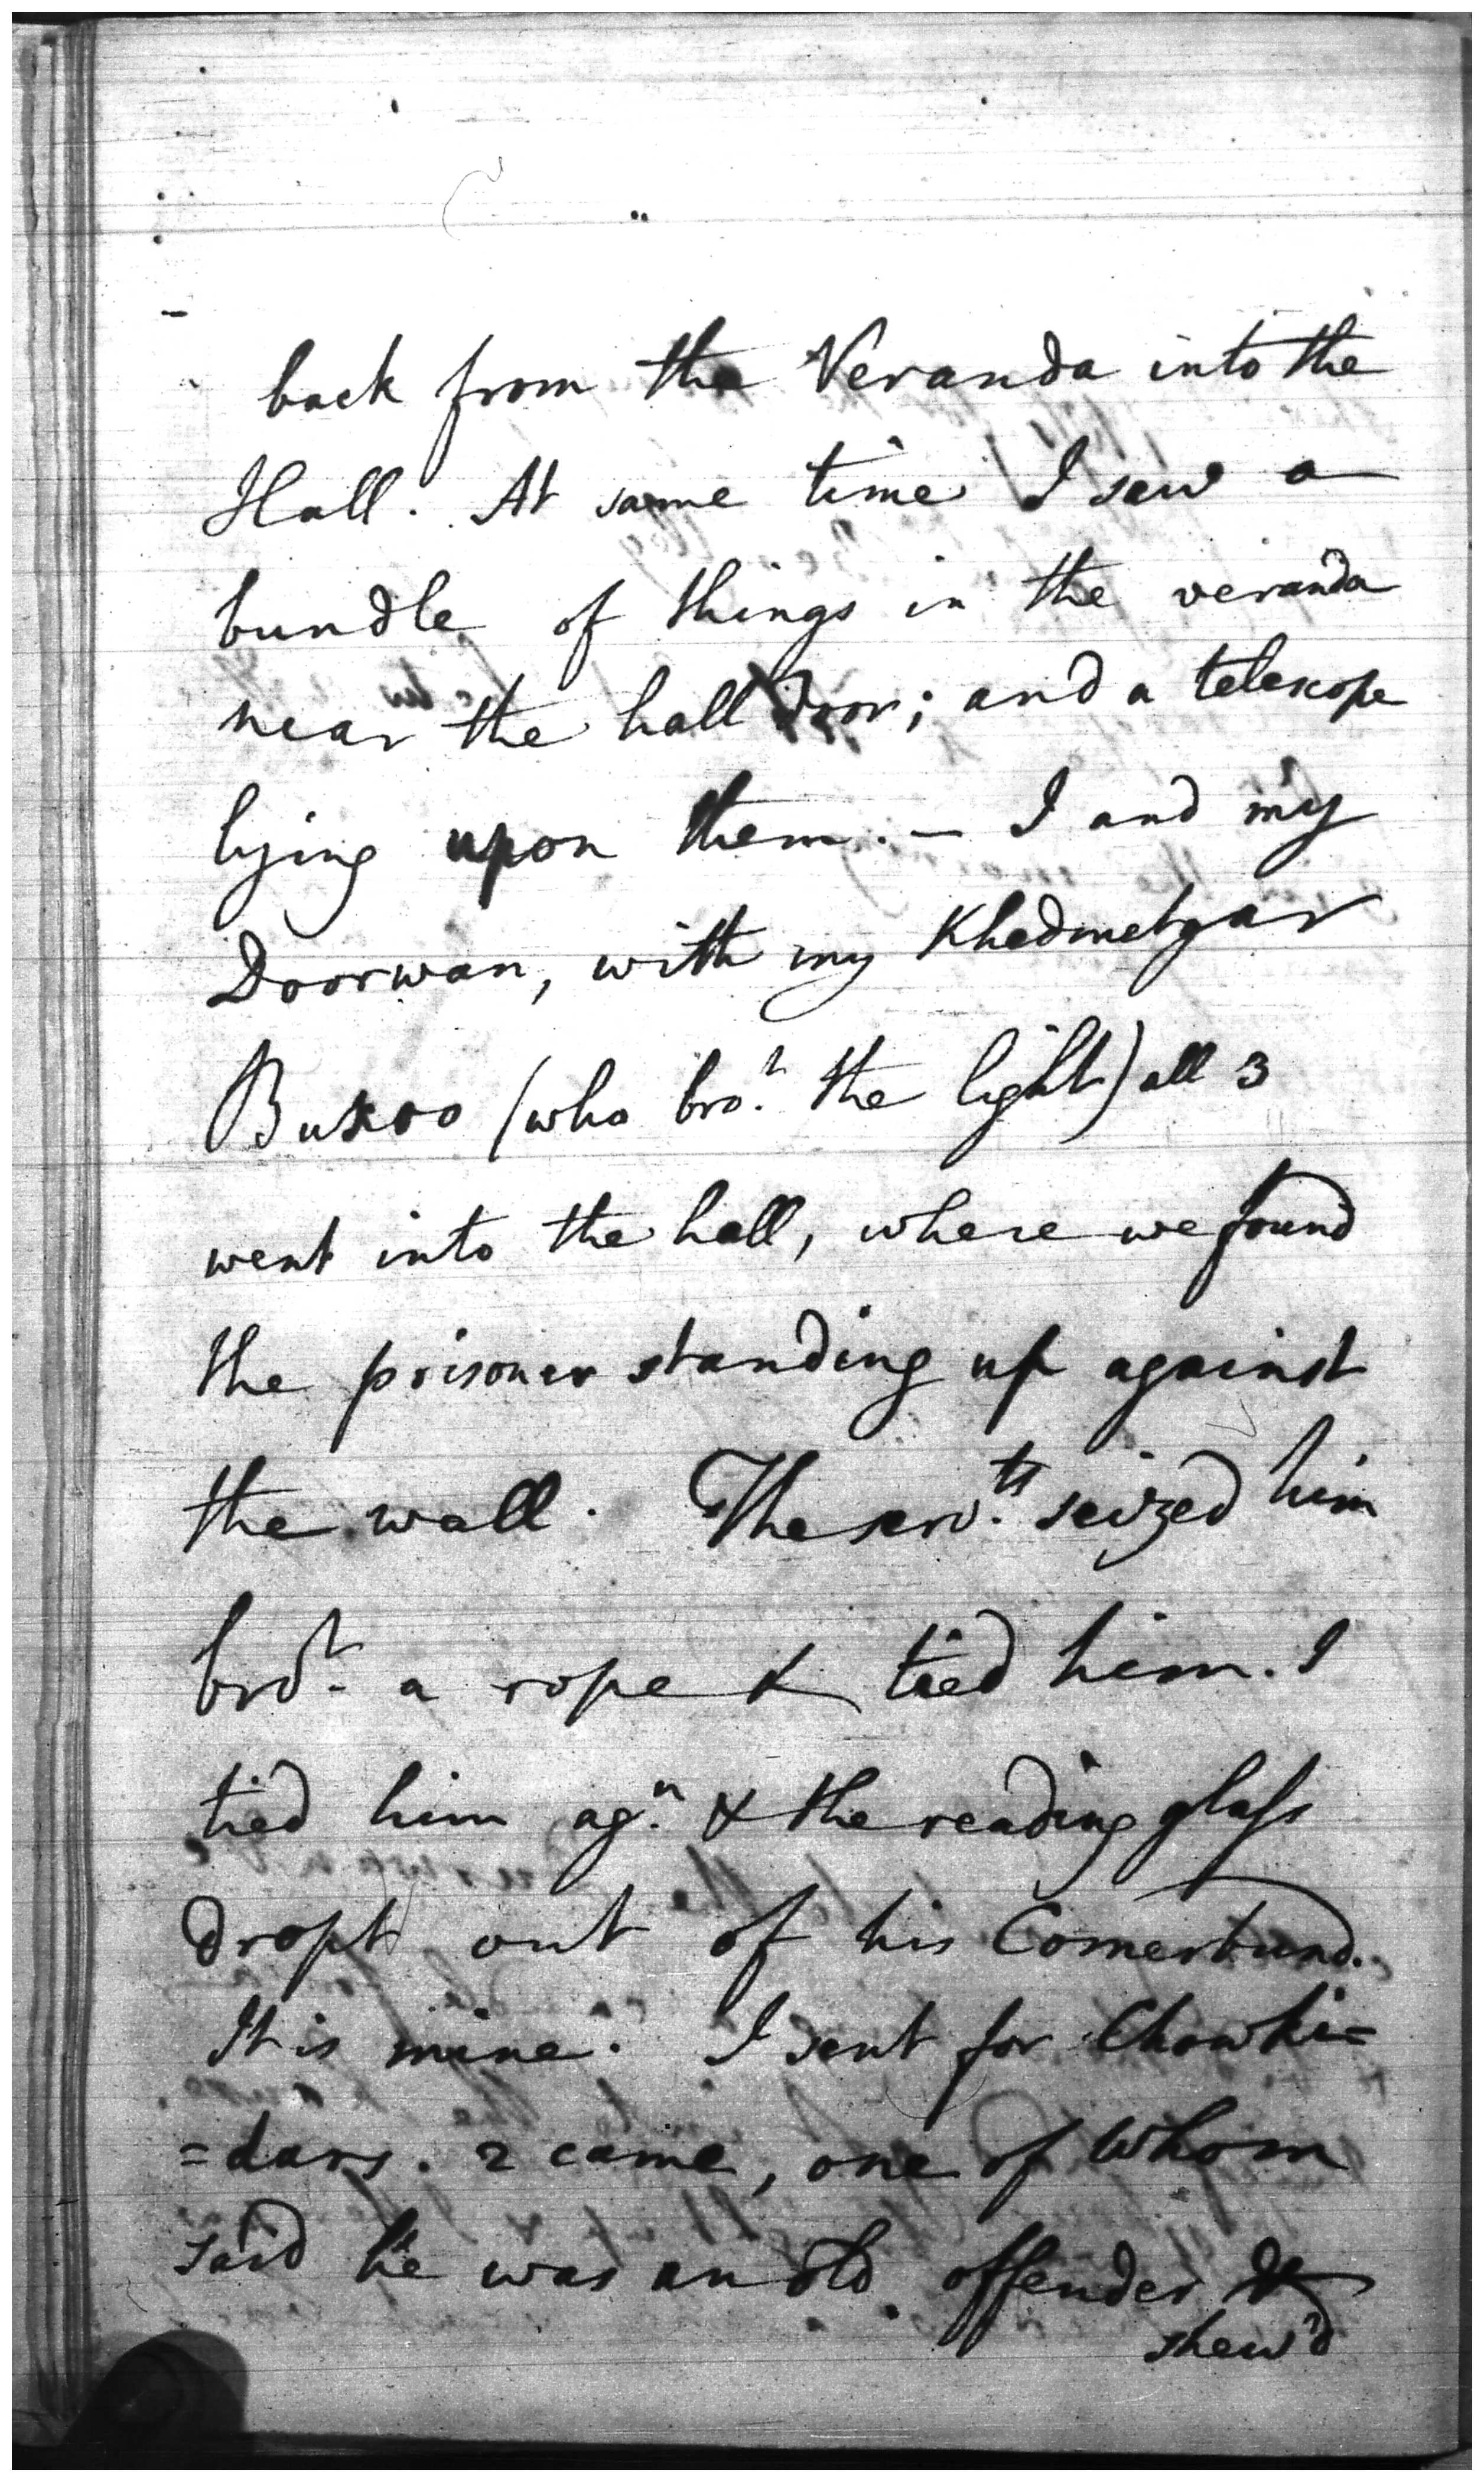 back from the Veranda into the
Hall. At same time I saw a
bundle of things in the veranda
near the hall door; and a telescope
lying upon them. — I and my
Doorwan, with my Khedmetgar
Buxoo (who bro.t the light) all 3
went into the hall, where we found
the prisoner standing up against
the wall. The serv.ts seized him
bro.t a rope & tied him. I
tied him ag.n & the reading glass
dropt out of his Comerbund.
It is mine. I sent for Chowki=
=dars. 2 came, one of whom
said he was an old offender &
shew'd